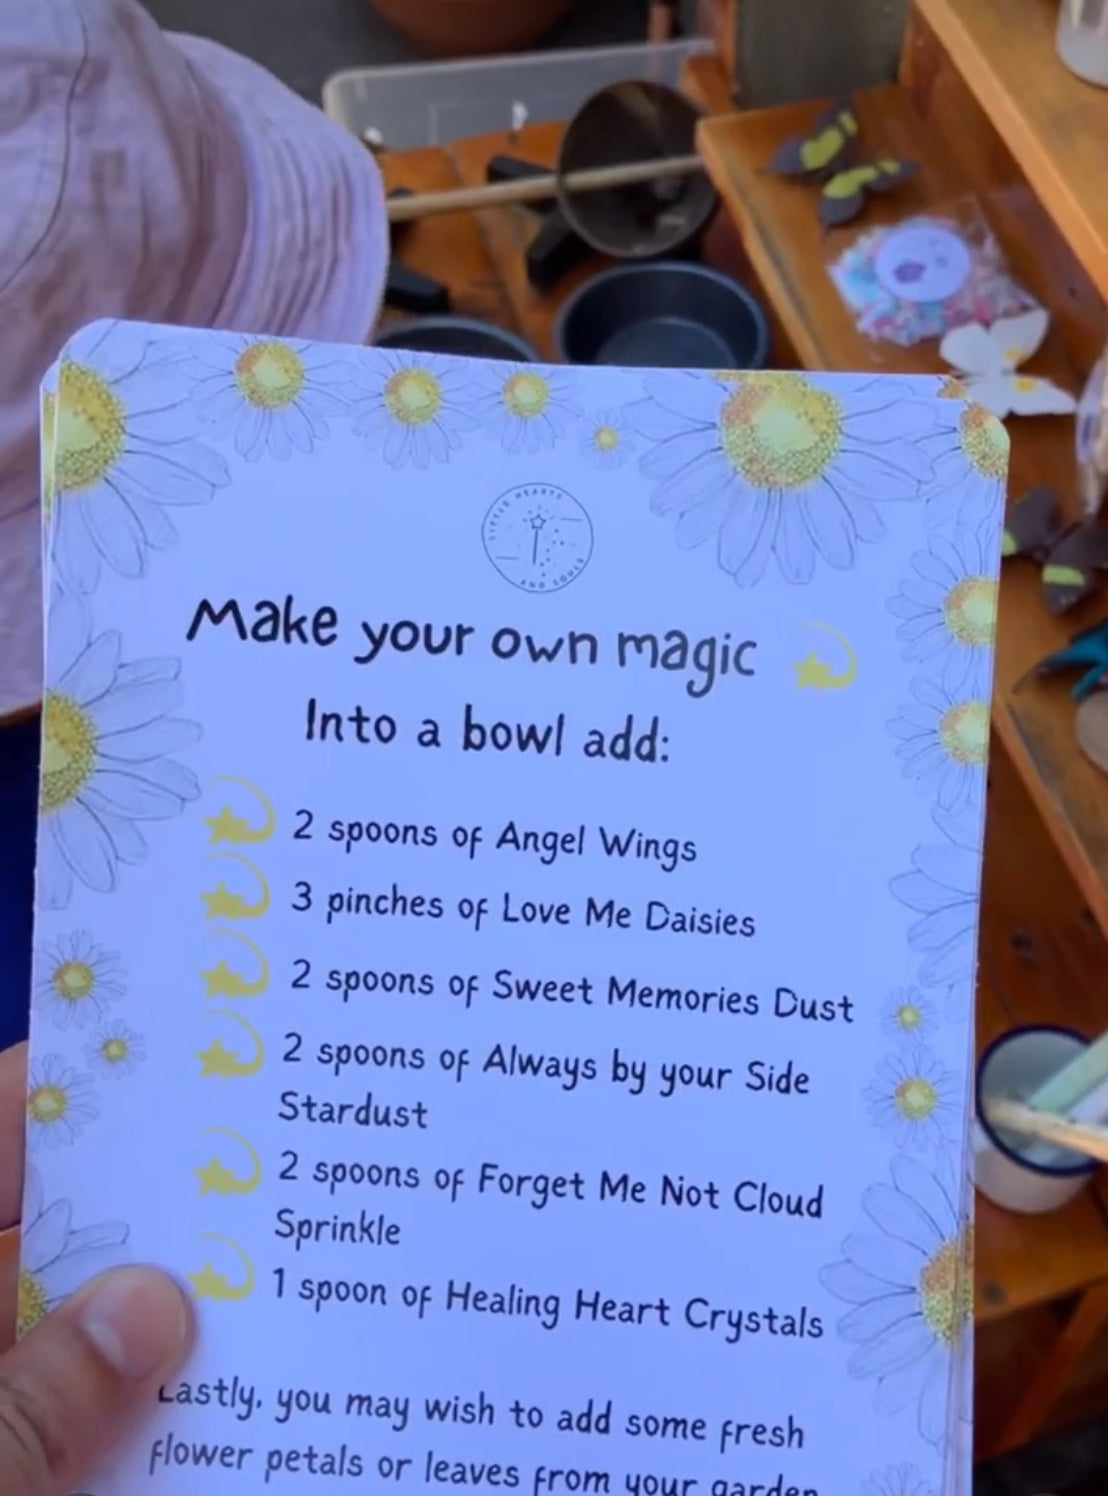 LITTLE HEARTS
AND SOULS
Make your own magic
Into a bowl add:
2 spoons of Angel Wings
3 pinches of Love Me Daisies
2 spoons of Sweet Memories Dust
2 spoons of Always by your Side
Stardust
2 spoons of Forget Me Not Cloud
Sprinkle
1 spoon of Healing Heart Crystals
Lastly, you may wish to add some fresh
flower petals or leaves from your garden